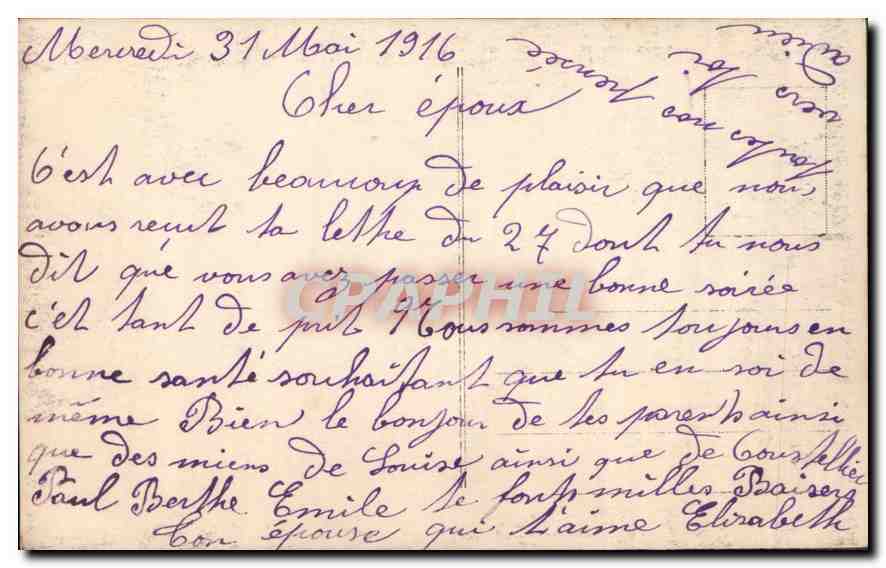 Mercredi 31 Mai 1916
Cher époux
C'est avec beaucoup de plaisir que nou
avons reçut ta lettre du 27 dont tu nous
dit que vous avez passer une bonne soirée
c'et tant de prit Nous sommes toujours en
bonne santé souhaitant que tu en soi de
même Bien le bonjour de tes parents ainsi
que des miens de Louise ainsi que de Coustellier
Paul Berthe Emile te font milles Baisers
Ton épouse qui t'aime Elizabeth
toutes mes pensée
vers toi
adieu
CPAPHIL